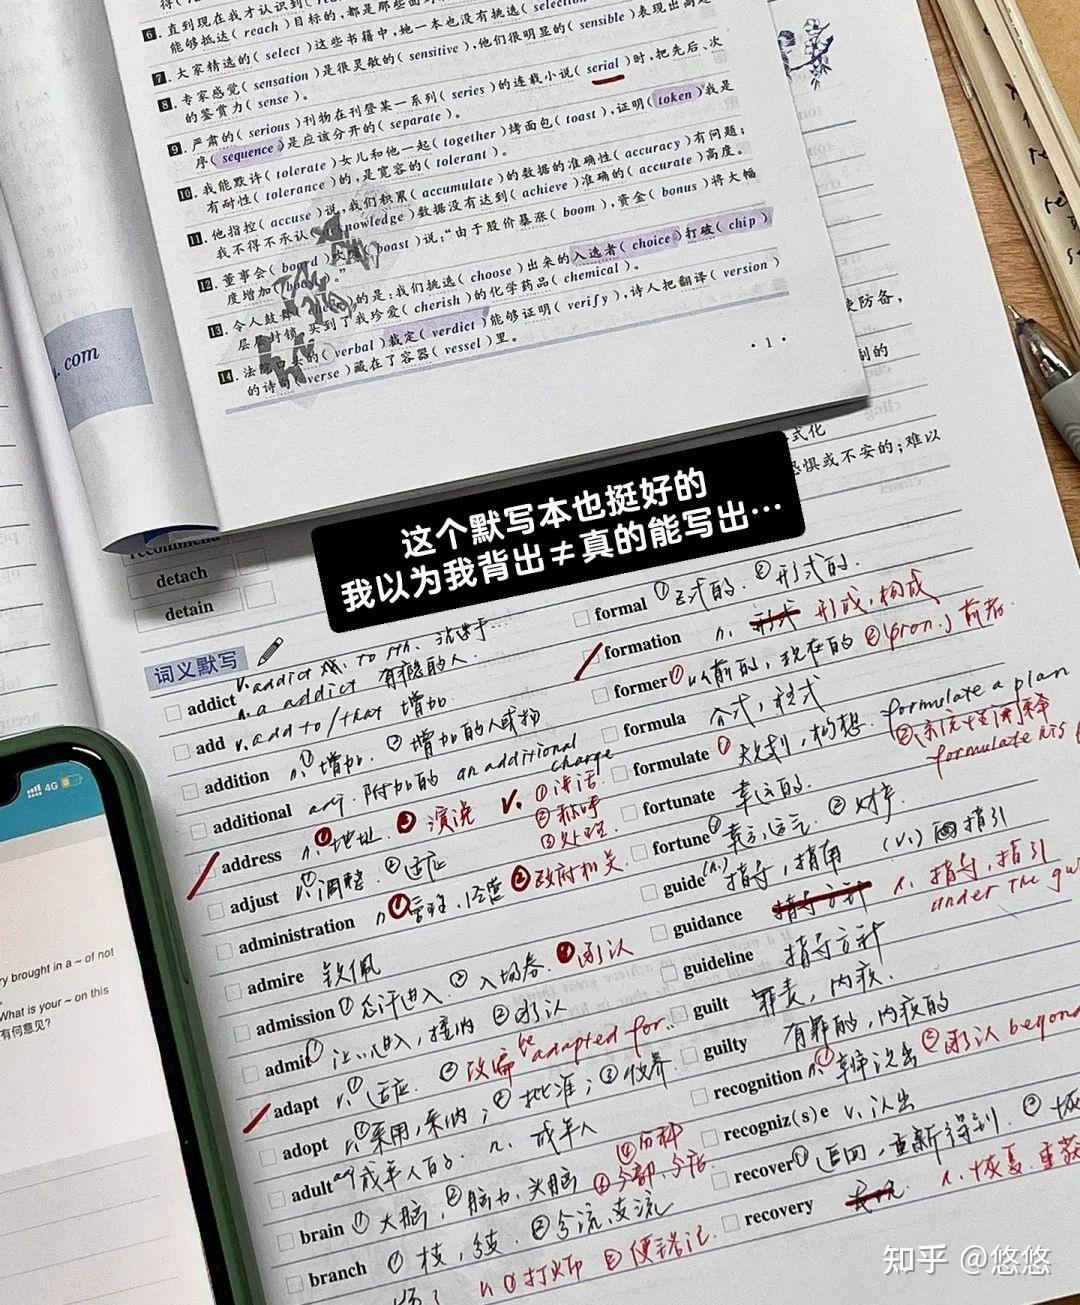 6. 直到现在我才认识到
能够抵达( reach )目标的，都是那些面
7. 大家精选的( select )这些书籍中，她一本也没有挑选( selection
8. 专家感觉( sensation )是很灵敏的( sensitive )，他们很明显的( sensible )表现出高
的鉴赏力( sense )。
9. 严肃的( serious )刊物在刊登某一系列( series )的连载小说( serial )时，把先后、次
序( sequence )是应该分开的( separate )。
10. 我能默许( tolerate )女儿和他一起( together )烤面包( toast )，证明( token )我是
有耐性( tolerance )的，是宽容的( tolerant )。
11. 他指控( accuse )说，我们积累( accumulate )的数据的准确性( accuracy )有问题；
我不得不承认( acknowledge )数据没有达到( achieve )准确的( accurate )高度。
12. 董事会( board )吹嘘( boast )说：“由于股价暴涨( boom )，资金( bonus )将大幅
度增加( boost )。”
13. 令人鼓舞( cheer )的是：我们挑选( choose )出来的入选者( choice )打破( chip )
层层封锁，买到了我珍爱( cherish )的化学药品( chemical )。
14. 法院口头的( verbal )裁定( verdict )能够证明( verify )，诗人把翻译( version )
的诗句( verse )藏在了容器( vessel )里。
· 1 ·
. com
使防备，
到的
式化
恐惧或不安的；难以
这个默写本也挺好的
我以为我背出≠真的能写出…
recommend
detach
detain
词义默写
addict v. addict sb. to sth. 沉迷于…
n. a addict 有瘾的人
add v. add to / that 增加
addition n. ①增加 ②增加的人或物
additional adj. 附加的 an additional charge
address n. ①地址 ②演说 v. ①讲话 ②称呼 ③处理
adjust v. ①调整 ②适应
administration n. ①管理、经营 ②政府机关
admire 钦佩
admission ①允许进入 ②入场券 ③承认
admit ①让…进入，接纳 ②承认
adapt v. ①适应 ②改编 be adapted for
adopt v. ①采用，采纳；②批准；③收养
adult adj 成年人的 n. 成年人
brain ①大脑 ②脑力、头脑
branch ①枝，分支 ②分流、支流 ③分部、分店 ④分科
n. ①打火 ②
formal ①正式的 ②形式的
formation n. 形式 形成，构成
former ①以前的，现在的 ②(pron.) 前者
formula 公式，程式
formulate ①规划，构想 formulate a plan
②系统性阐释 formulate his
fortunate 幸运的
fortune ①幸运，运气 ②财产
guide (n.) 指导，指南 (v.) 指引
guidance 指导方针 n. 指导，指引 under the gu
guideline 指导方针
guilt 罪责，内疚
guilty 有罪的，内疚的
recognition n. ①辨认出 ②承认 beyond
recogniz(s)e v. 认出
recover ①追回，重新得到 ②恢
recovery n. 恢复，重获
4G
ry brought in a ~ of not
What is your ~ on this
有何意见？
知乎 @悠悠